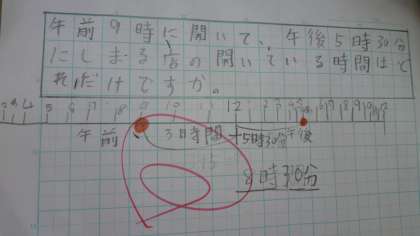 午前9時に開いて、午後5時30分
にしまる店の開いている時間はど
れだけですか。
5 6 7 8 9 10 11 12 1 2 3 4 5 6 7 8 9 10 11 12
午前 3時間+5時30分 午後
8時30分